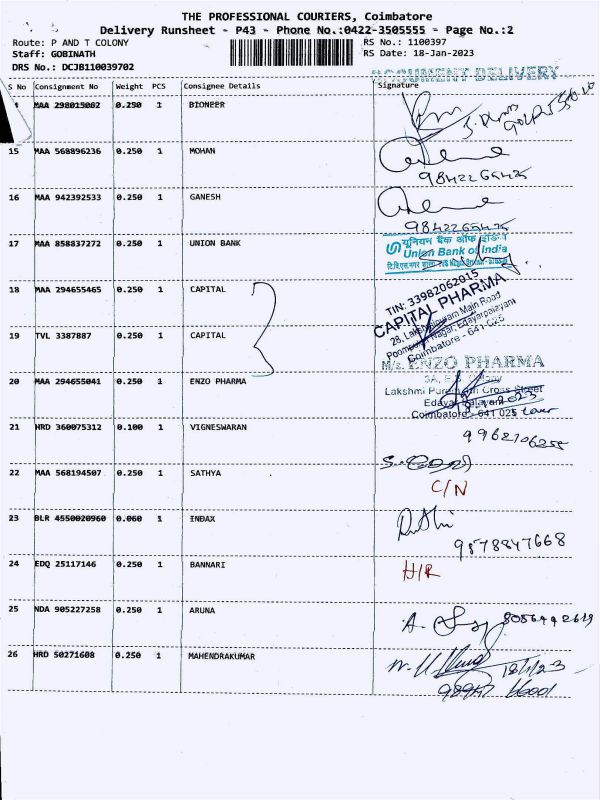 THE PROFESSIONAL COURIERS, Coimbatore
Delivery Runsheet - P43 - Phone No.:0422-3505555 - Page No.:2
Route: P AND T COLONY
RS No.: 1100397
Staff: GOBINATH
RS Date: 18-Jan-2023
DRS No.: DCJB110039702
DOCUMENT DELIVERY
S No Consignment No Weight PCS Consignee Details Signature
MAA 298015002 0.250 1 BIONEER
15 MAA 568896236 0.250 1 MOHAN
9842265425
16 MAA 942392533 0.250 1 GANESH
9842265425
17 MAA 858837272 0.250 1 UNION BANK
यूनियन बैंक ऑफ इंडिया
Union Bank of India
18 MAA 294655465 0.250 1 CAPITAL
TIN: 33982062015
CAPITAL PHARMA
28, Lakshmipuram Main Road
Nagar, Edayarpalayam
Coimbatore - 641 025
19 TVL 3387887 0.250 1 CAPITAL
M/s. ENZO PHARMA
20 MAA 294655041 0.250 1 ENZO PHARMA
Lakshmi Cross Street
Coimbatore - 641 025
21 HRD 360075312 0.100 1 VIGNESWARAN
9962706255
22 MAA 568194507 0.250 1 SATHYA
C/N
23 BLR 4550020960 0.060 1 INBAX
9578847668
24 EDQ 25117146 0.250 1 BANNARI
H/R
25 NDA 905227258 0.250 1 ARUNA
8056442619
26 HRD 50271608 0.250 1 MAHENDRAKUMAR
18/1/23